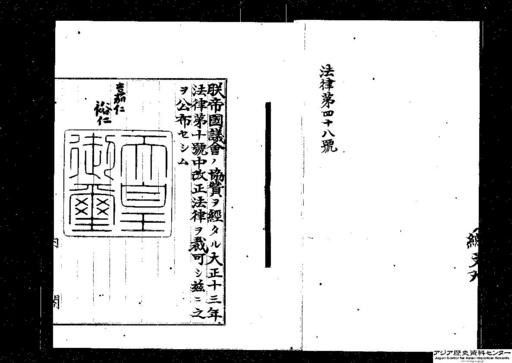 法律第四十八號
朕帝國議會ノ協賛ヲ經タル大正十三年
法律第十號中改正法律ヲ裁可シ茲ニ之
ヲ公布セシム
嘉仁
裕仁
天皇
御璽
内閣
アジア歴史資料センター
Japan Center for Asian Historical Records